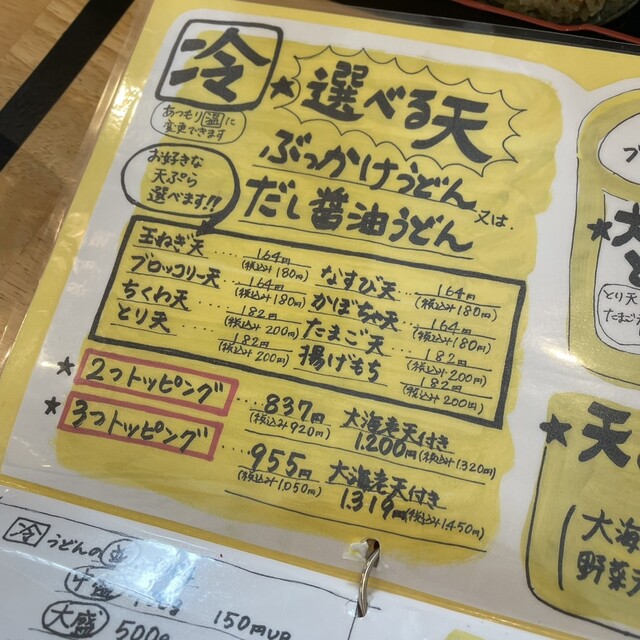 冷
★選べる天
あつもり温に
変更できます
お好きな
天ぷら
選べます!!
ぶっかけうどん
又は
だし醤油うどん
玉ねぎ天‥‥164円(税込み180円)
なすび天‥‥164円(税込み180円)
ブロッコリー天‥‥164円(税込み180円)
かぼちゃ天‥‥164円(税込み180円)
ちくわ天‥‥182円(税込み200円)
たまご天‥‥182円(税込み200円)
とり天‥‥182円(税込み200円)
揚げもち‥‥182円(税込み200円)
★2つトッピング‥‥837円(税込み920円)
大海老天付き1.200円(税込み1.320円)
★3つトッピング‥‥955円(税込み1.050円)
大海老天付き1.319円(税込み1.450円)
冷うどんの
大盛 500g
150円UP
ブ
★大
と
とり天
たまご
★天
大海
野菜